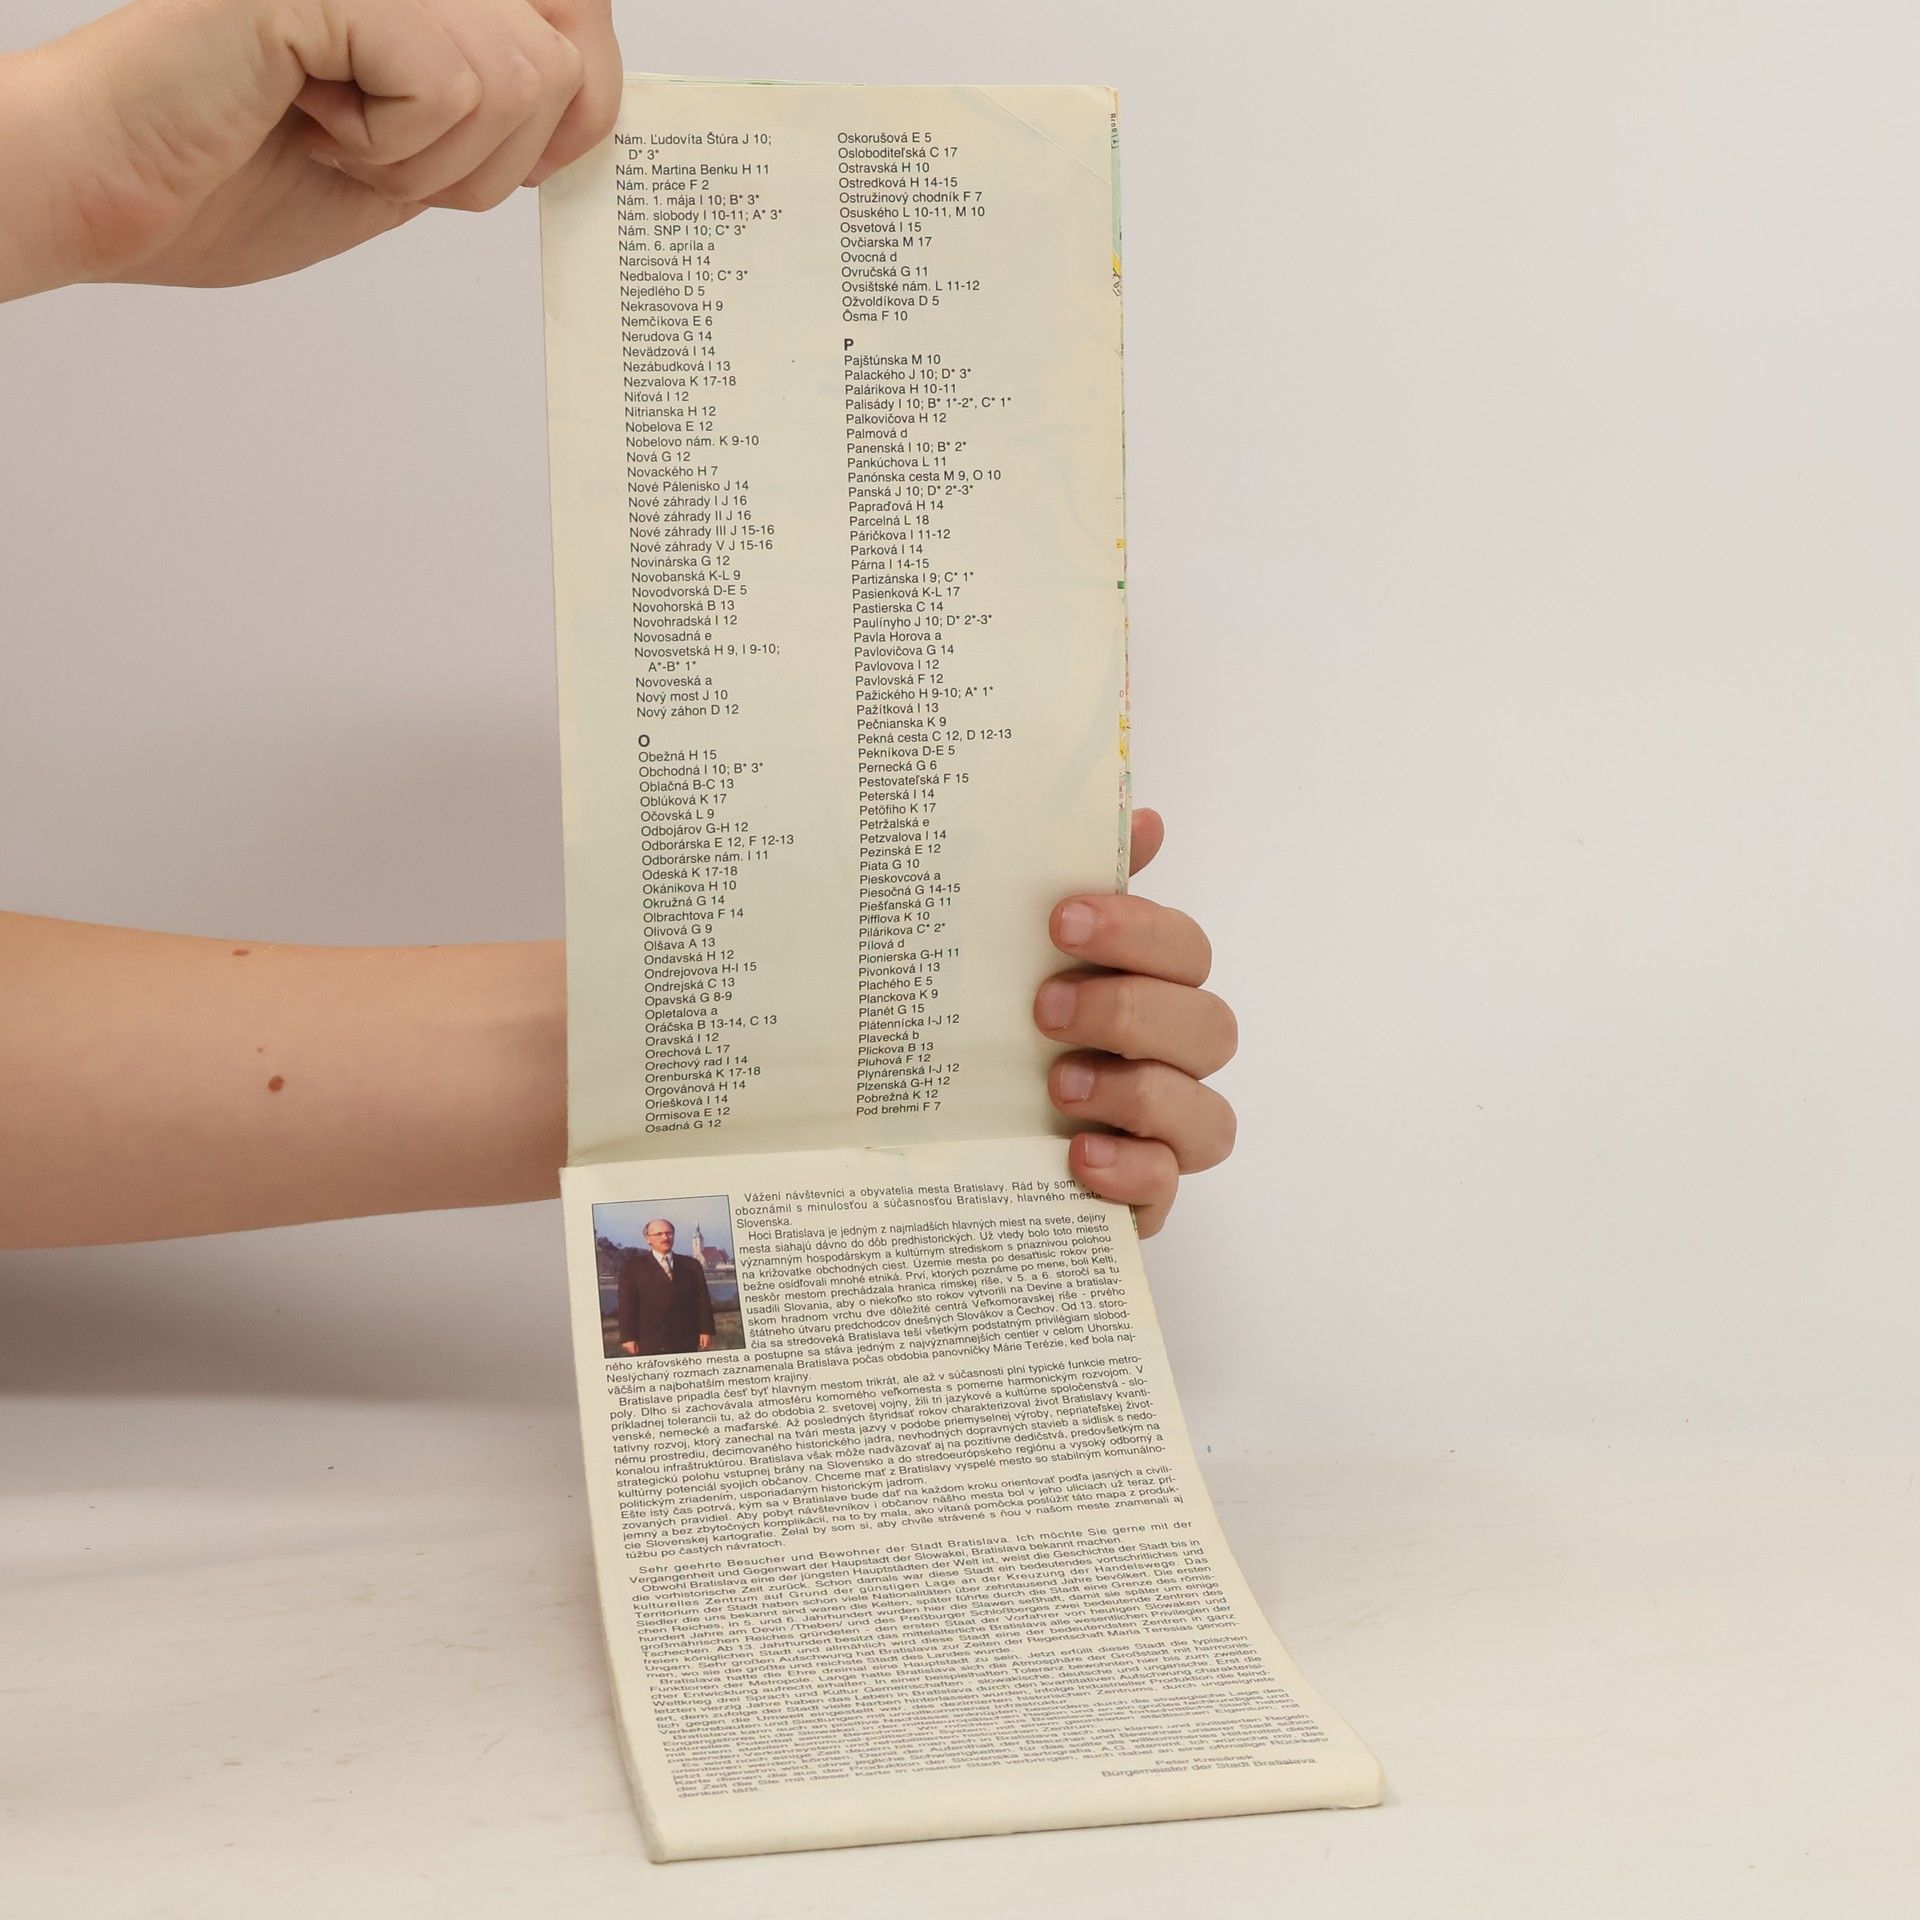 Nám. Ľudovíta Štúra J 10;
D* 3*
Nám. Martina Benku H 11
Nám. práce F 2
Nám. 1. mája I 10; B* 3*
Nám. slobody I 10-11; A* 3*
Nám. SNP I 10; C* 3*
Nám. 6. apríla a
Narcisová H 14
Nedbalova I 10; C* 3*
Nejedlého D 5
Nekrasovova H 9
Nemčíkova E 6
Nerudova G 14
Nevädzová I 14
Nezábudková I 13
Nezvalova K 17-18
Niťová I 12
Nitrianska H 12
Nobelova E 12
Nobelovo nám. K 9-10
Nová G 12
Novackého H 7
Nové Pálenisko J 14
Nové záhrady I J 16
Nové záhrady II J 16
Nové záhrady III J 15-16
Nové záhrady V J 15-16
Novinárska G 12
Novobanská K-L 9
Novodvorská D-E 5
Novohorská B 13
Novohradská I 12
Novosadná e
Novosvetská H 9, I 9-10;
A*-B* 1*
Novoveská a
Nový most J 10
Nový záhon D 12
O
Obežná H 15
Obchodná I 10; B* 3*
Oblačná B-C 13
Oblúková K 17
Očovská L 9
Odbojárov G-H 12
Odborárska E 12, F 12-13
Odborárske nám. I 11
Odeská K 17-18
Okánikova H 10
Okružná G 14
Olbrachtova F 14
Olivová G 9
Olšava A 13
Ondavská H 12
Ondrejovova H-I 15
Ondrejská C 13
Opavská G 8-9
Opletalova a
Oráčska B 13-14, C 13
Oravská I 12
Orechová L 17
Orechový rad I 14
Orenburská K 17-18
Orgovánová H 14
Oriešková I 14
Ormisova E 12
Osadná G 12
Oskorušová E 5
Osloboditeľská C 17
Ostravská H 10
Ostredková H 14-15
Ostružinový chodník F 7
Osuského L 10-11, M 10
Osvetová I 15
Ovčiarska M 17
Ovocná d
Ovručská G 11
Ovsištské nám. L 11-12
Ožvoldíkova D 5
Ôsma F 10
P
Pajštúnska M 10
Palackého J 10; D* 3*
Palárikova H 10-11
Palisády I 10; B* 1*-2*, C* 1*
Palkovičova H 12
Palmová d
Panenská I 10; B* 2*
Pankúchova L 11
Panónska cesta M 9, O 10
Panská J 10; D* 2*-3*
Papraďová H 14
Parcelná L 18
Páričkova I 11-12
Parková I 14
Párna I 14-15
Partizánska I 9; C* 1*
Pasienková K-L 17
Pastierska C 14
Paulínyho J 10; D* 2*-3*
Pavla Horova a
Pavlovičova G 14
Pavlovova I 12
Pavlovská F 12
Pažického H 9-10; A* 1*
Pažítková I 13
Pečnianska K 9
Pekná cesta C 12, D 12-13
Pekníkova D-E 5
Pernecká G 6
Pestovateľská F 15
Peterská I 14
Petöfiho K 17
Petržalská e
Petzvalova I 14
Pezinská E 12
Piata G 10
Pieskovcová a
Piesočná G 14-15
Piešťanská G 11
Pifflova K 10
Pilárikova C* 2*
Pílová d
Pionierska G-H 11
Pivonková I 13
Plachého E 5
Planckova K 9
Planét G 15
Plátennícka I-J 12
Plavecká b
Plickova B 13
Pluhová F 12
Plynárenská I-J 12
Plzenská G-H 12
Pobrežná K 12
Pod brehmi F 7
Vážení návštevníci a obyvatelia mesta Bratislavy. Rád by som
oboznámil s minulosťou a súčasnosťou Bratislavy, hlavného mesta
Slovenska.
Hoci Bratislava je jedným z najmladších hlavných miest na svete, dejiny
mesta siahajú dávno do dôb predhistorických. Už vtedy bolo toto miesto
významným hospodárskym a kultúrnym strediskom s priaznivou polohou
na križovatke obchodných ciest. Územie mesta po desaťtisíc rokov prie-
bežne osídľovali mnohé etniká. Prví, ktorých poznáme po mene, boli Kelti,
neskôr mestom prechádzala hranica rímskej ríše, v 5. a 6. storočí sa tu
usadili Slovania, aby o niekoľko sto rokov vytvorili na Devíne a bratislav-
skom hradnom vrchu dve dôležité centrá Veľkomoravskej ríše - prvého
štátneho útvaru predchodcov dnešných Slovákov a Čechov. Od 13. storo-
čia sa stredoveká Bratislava teší všetkým podstatným privilégiam slobod-
ného kráľovského mesta a postupne sa stáva jedným z najvýznamnejších centier v celom Uhorsku.
Neslýchaný rozmach zaznamenala Bratislava počas obdobia panovníčky Márie Terézie, keď bola naj-
väčším a najbohatším mestom krajiny.
Bratislave pripadla česť byť hlavným mestom trikrát, ale až v súčasnosti plní typické funkcie metro-
poly. Dlho si zachovávala atmosféru komorného veľkomesta s pomerne harmonickým rozvojom. V
príkladnej tolerancii tu, až do obdobia 2. svetovej vojny, žili tri jazykové a kultúrne spoločenstvá - slo-
venské, nemecké a maďarské. Až posledných štyridsať rokov charakterizoval život Bratislavy kvanti-
tatívny rozvoj, ktorý zanechal na tvári mesta jazvy v podobe priemyselnej výroby, nepriateľskej život-
nému prostrediu, decimovaného historického jadra, nevhodných dopravných stavieb a sídlisk s nedo-
konalou infraštruktúrou. Bratislava však môže nadväzovať aj na pozitívne dedičstvá, predovšetkým na
strategickú polohu vstupnej brány na Slovensko a do stredoeurópskeho regiónu a vysoký odborný a
kultúrny potenciál svojich občanov. Chceme mať z Bratislavy vyspelé mesto so stabilným komunálno-
politickým zriadením, usporiadaným historickým jadrom.
Ešte istý čas potrvá, kým sa v Bratislave bude dať na každom kroku orientovať podľa jasných a civili-
zovaných pravidiel. Aby pobyt návštevníkov i občanov nášho mesta bol v jeho uliciach už teraz prí-
jemný a bez zbytočných komplikácií, na to by mala, ako vítaná pomôcka poslúžiť táto mapa z produk-
cie Slovenskej kartografie. Želal by som si, aby chvíle strávené s ňou v našom meste znamenali aj
túžbu po častých návratoch.
Sehr geehrte Besucher und Bewohner der Stadt Bratislava. Ich möchte Sie gerne mit der
Vergangenheit und Gegenwart der Hauptstadt der Slowakei, Bratislava bekannt machen.
Obwohl Bratislava eine der jüngsten Hauptstädten der Welt ist, weist die Geschichte der Stadt bis in
die vorhistorische Zeit zurück. Schon damals war diese Stadt ein bedeutendes vortschrittliches und
kulturelles Zentrum auf Grund der günstigen Lage an der Kreuzung der Handelswege. Das
Territorium der Stadt haben schon viele Nationalitäten über zehntausend Jahre bevölkert. Die ersten
Siedler die uns bekannt sind waren die Kelten, später führte durch die Stadt eine Grenze des römis-
chen Reiches, in 5. und 6. Jahrhundert wurden hier die Slawen seßhaft, damit sie später um einige
hundert Jahre am Devín /Theben/ und des Preßburger Schloßberges zwei bedeutende Zentren des
großmährischen Reiches gründeten - den ersten Staat der Vorfahrer von heutigen Slowaken und
Tschechen. Ab 13. Jahrhundert besitzt das mittelalterliche Bratislava alle wesentlichen Privilegien der
freien königlichen Stadt und allmählich wird diese Stadt eine der bedeutendsten Zentren in ganz
Ungarn. Sehr großen Aufschwung hat Bratislava zur Zeiten der Regentschaft Maria Teresias genom-
men, wo sie die größte und reichste Stadt des Landes wurde.
Bratislava hatte die Ehre dreimal eine Hauptstadt zu sein. Jetzt erfüllt diese Stadt die typischen
Funktionen der Metropole. Lange hatte Bratislava sich die Atmosphäre der Großstadt mit harmonis-
cher Entwicklung aufrecht erhalten. In einer beispielhaften Toleranz bewohnten hier bis zum zweiten
Weltkrieg drei Sprach und Kultur Gemeinschaften - slowakische, deutsche und ungarische. Erst die
letzten vierzig Jahre haben das Leben in Bratislava durch den kvantitativen Aufschwung charakterisi-
ert, dem zufolge der Stadt viele Narben hinterlassen wurden, infolge industrieller Produktion die feind-
lich gegen die Umwelt eingestellt war, des dezimierten historischen Zentrums, durch ungeeignete
Verkehrsbauten und Siedlungen mit unvollkommener Infrastruktur.
Bratislava kann auch an positive Nachlässe anknüpfen, besonders durch die strategische Lage des
Eingangstores in die Slowakei, in der mitteleuropäischen Region und an großes fachkundiges und
kulturelles Potential seiner Bewohner. Wir möchten aus Bratislava eine fortschrittliche Stadt haben
mit einem stabilen kommunal-politischen System, mit einem geordneten städtischen Eigentum, mit
passenden Verkehrsystem und rehabilitierten historischen Zentrum.
Es wird noch einige Zeit dauern bis man sich in Bratislava nach den klaren und zivilisierten Regeln
orientieren werden können. Damit der Aufenthalt der Besucher und Bewohner unserer Stadt schon
jetzt angenehm wird, ohne jegliche Schwierigkeiten, für das sollte als willkommenes Hilfsmittel diese
Karte dienen die aus der Produktion der Slovenska kartografia, A.G. stammt. Ich wünsche mir, das
die Zeit die Sie mit dieser Karte in unserer Stadt verbringen, auch dabei an eine oftmalige Rückkehr
denken läßt.
Peter Kresánek
Bürgermeister der Stadt Bratislava